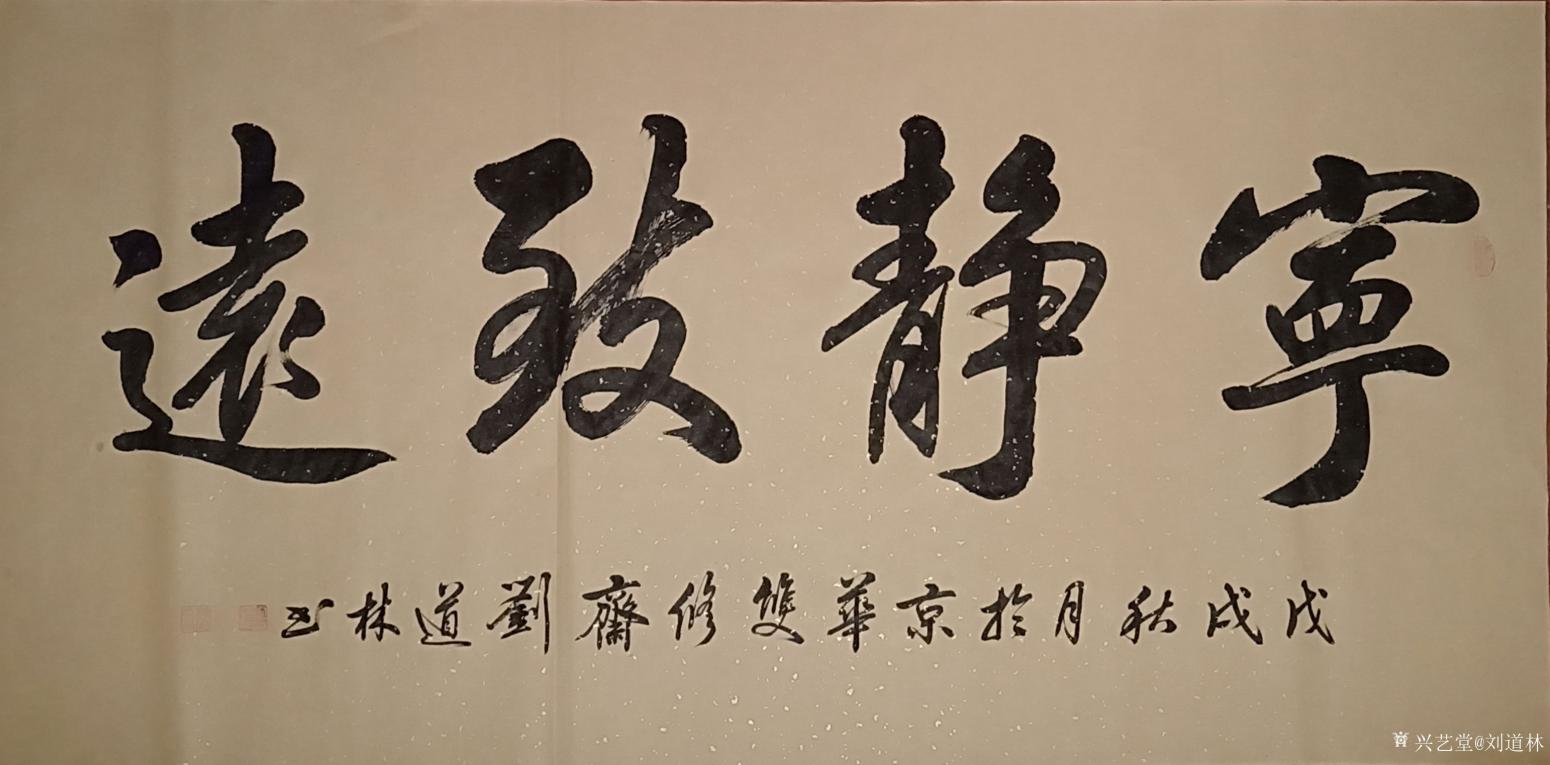 寧靜致遠
戊戌秋月於京華雙修齋劉道林书
兴艺堂@刘道林